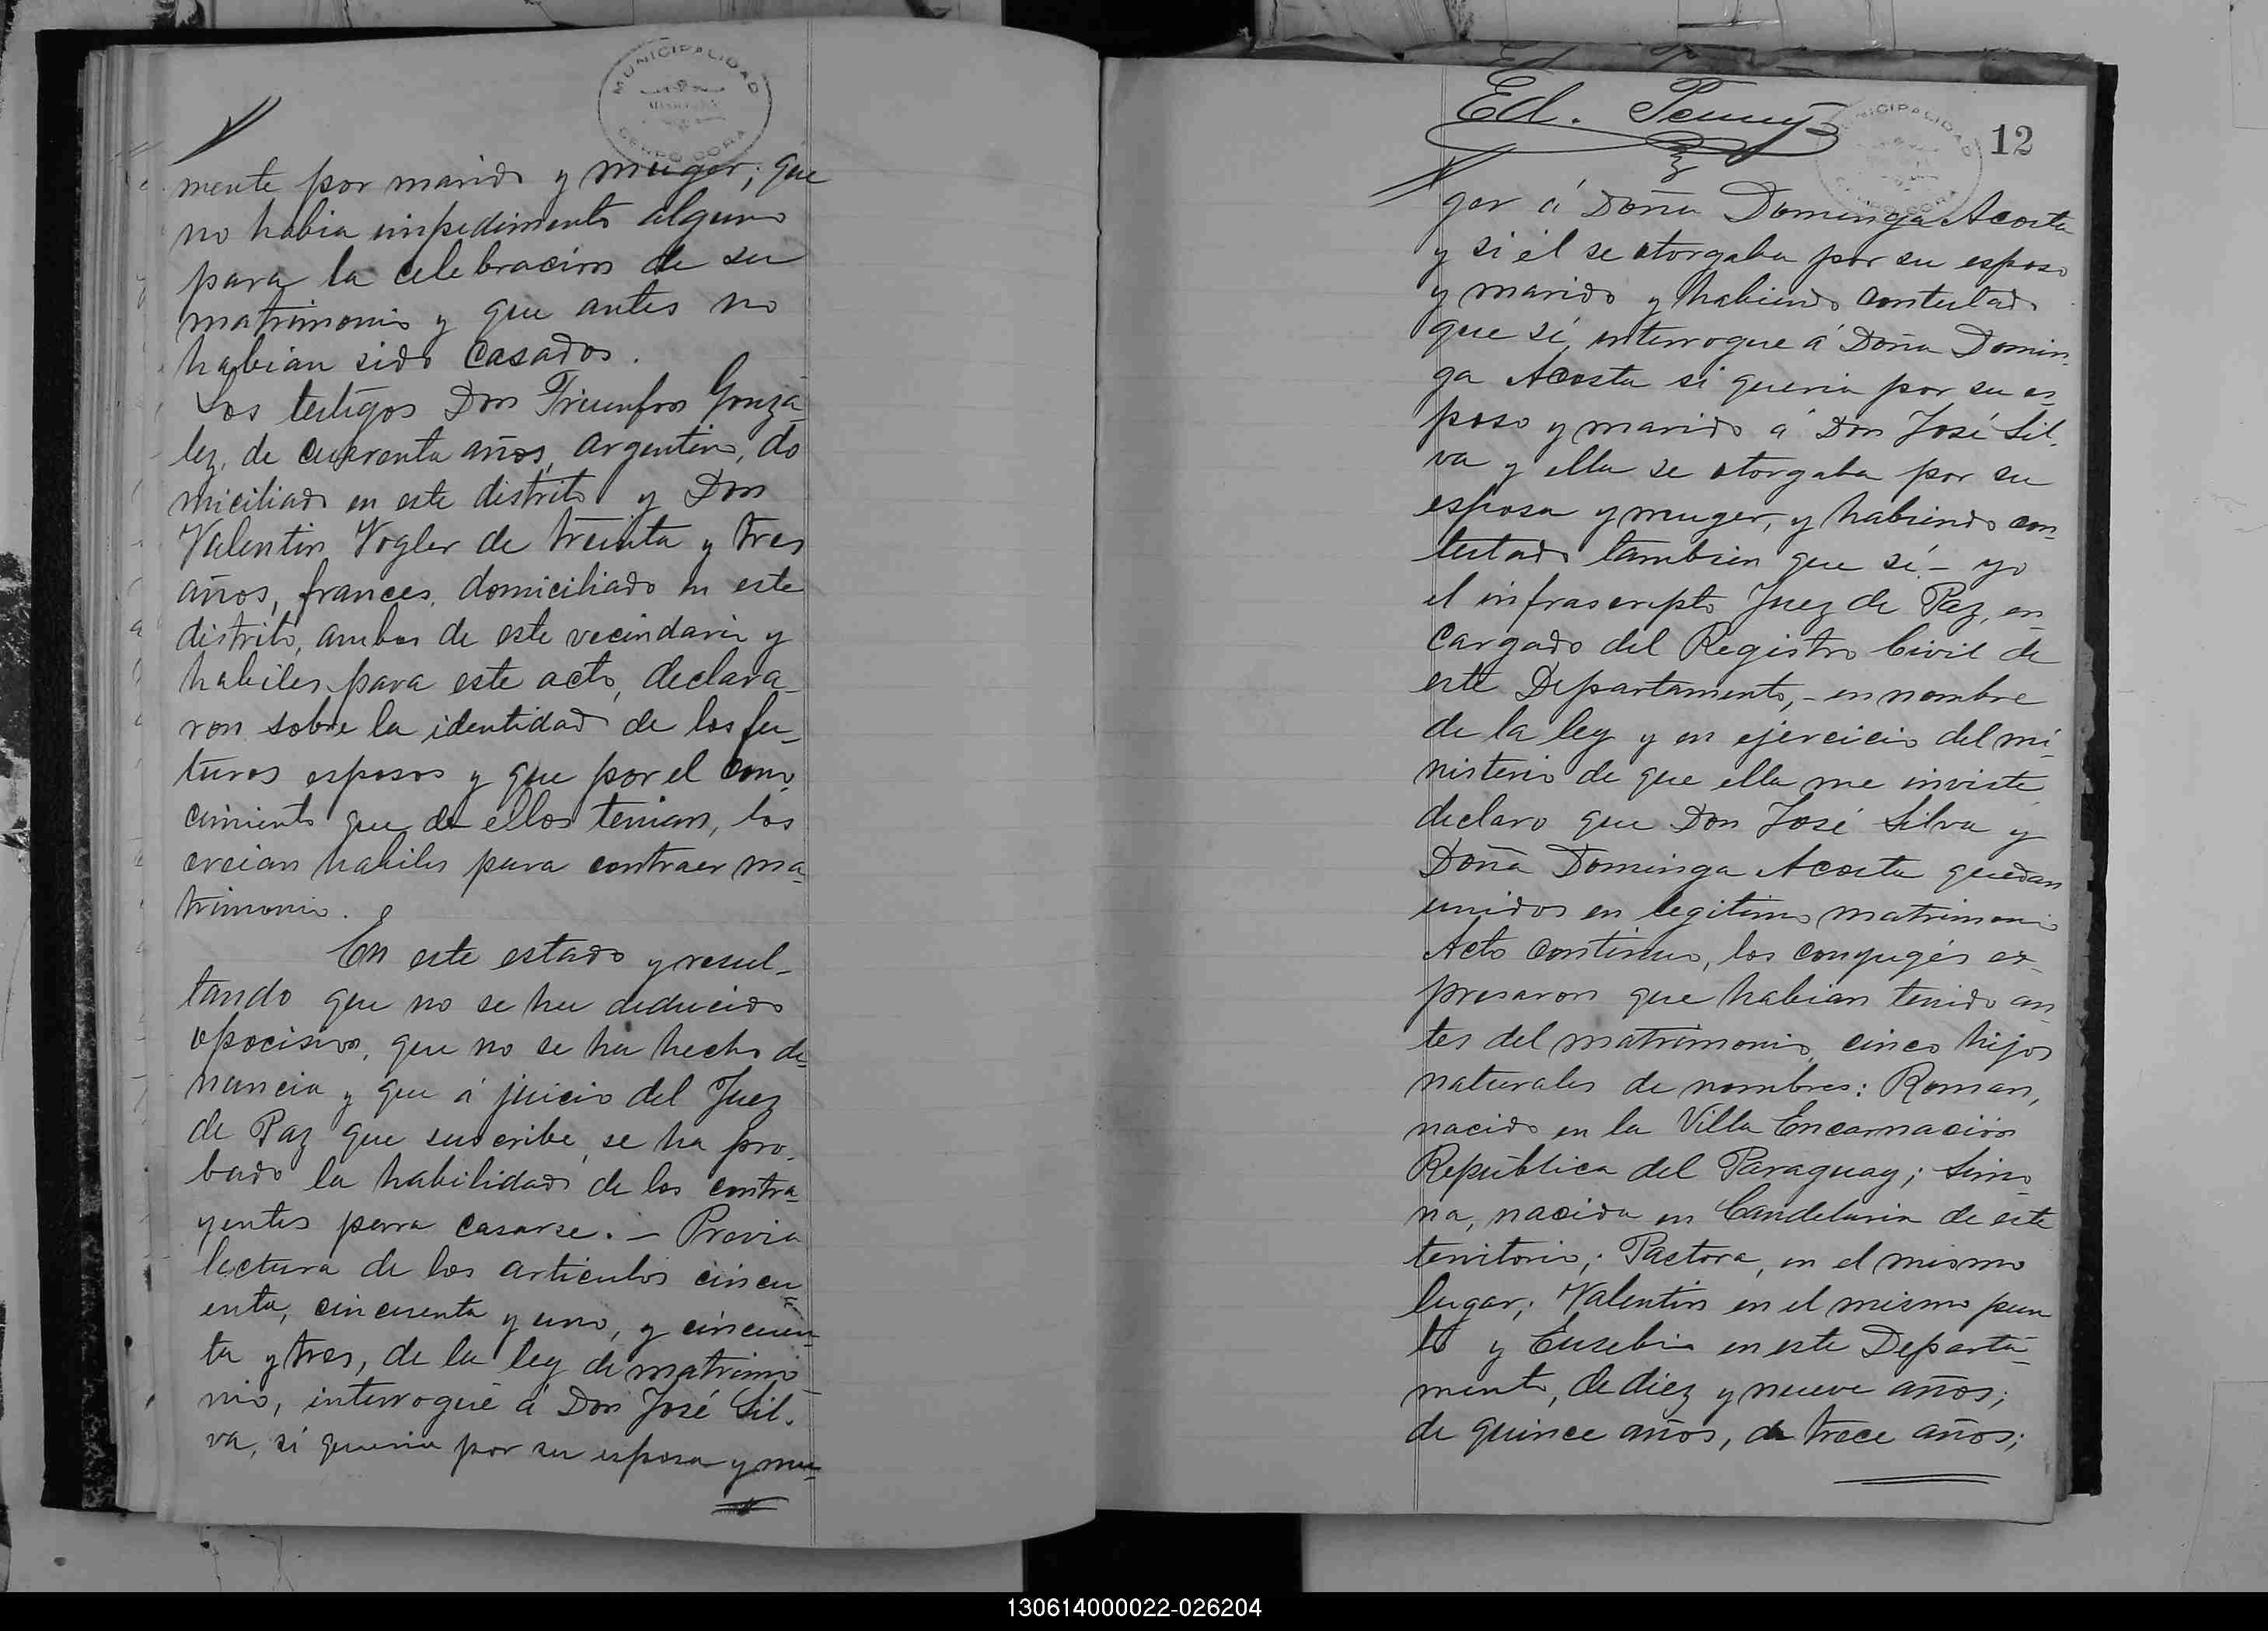 MUNICIPALIDAD
CERRO CORA
mente por marido y muger; que
no habia impedimento alguno
para la celebracion de su
matrimonio y que antes no
habian sido casados.
Los testigos Don Triunfon Gonza-
lez, de cuarenta años, argentino, do
miciliado en este distrito y Don
Valentin Vogler de treinta y tres
años, frances, domiciliado en este
distrito, ambos de este vecindario y
habiles para este acto, declara-
ron sobre la identidad de los fu-
turos esposos y que por el cono-
cimiento que de ellos tenian, los
creian habiles para contraer ma-
trimonio.
En este estado y resul-
tando que no se ha deducido
oposicion, que no se ha hecho de-
nuncia y que á juicio del Juez
de Paz que suscribe, se ha pro-
bado la habilidad de los contra-
yentes para casarse. - Previa
lectura de los articulos cincu-
enta, cincuenta y uno, y cincuen-
ta y tres, de la ley de matrimo-
nio, interrogué á Don José Sil-
va, si queria por su esposa y mu-
Ed. Penny
MUNICIPALIDAD
CERRO CORA
12
ger á Doña Dominga Acosta
y si él se otorgaba por su esposo
y marido y habiendo contestado
que sí, interrogue á Doña Domin-
ga Acosta si queria por su es-
poso y marido á Don José Sil-
va y ella se otorgaba por su
esposa y muger, y habiendo con-
testado tambien que sí - yo
el infrascripto Juez de Paz, en-
cargado del Registro Civil de
este Departamento, - en nombre
de la ley y en ejercicio del mi-
nisterio de que ella me inviste
declaro que Don José Silva y
Doña Dominga Acosta quedan
unidos en legitimo matrimonio
Acto continuo, los conyugés ex-
presaron que habian tenido an-
tes del matrimonio, cinco hijos
naturales de nombres: Roman,
nacido en la Villa Encarnación
República del Paraguay; Simo-
na, nacida en Candelaria de este
territorio; Pastora, en el mismo
lugar; Valentin en el mismo pun
to y Eusebia en este Departa-
mento, de diez y nueve años;
de quince años, de trece años;
130614000022-026204